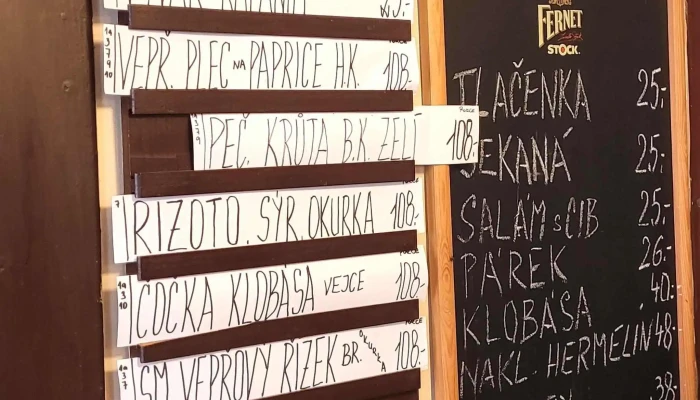 1a 3 7 9 10 VEPŘ. PLEC NA PAPRICE H.K. 108.-
7 9 PEČ. KRŮTA B.K. ZELÍ 108.-
7 RIZOTO. SÝR. OKURKA 108.-
1a 3 10 ČOČKA KLOBÁSA VEJCE 108.-
1a 3 7 SM VEPŘOVÝ ŘÍZEK BR. OKURKA 108.-
FERNET
STOCK
TLAČENKA 25,-
SEKANÁ 25,-
SALÁM S CIB 25,-
PÁREK 26.-
KLOBÁSA 40.-
NAKL. HERMELÍN 48.-
38.-